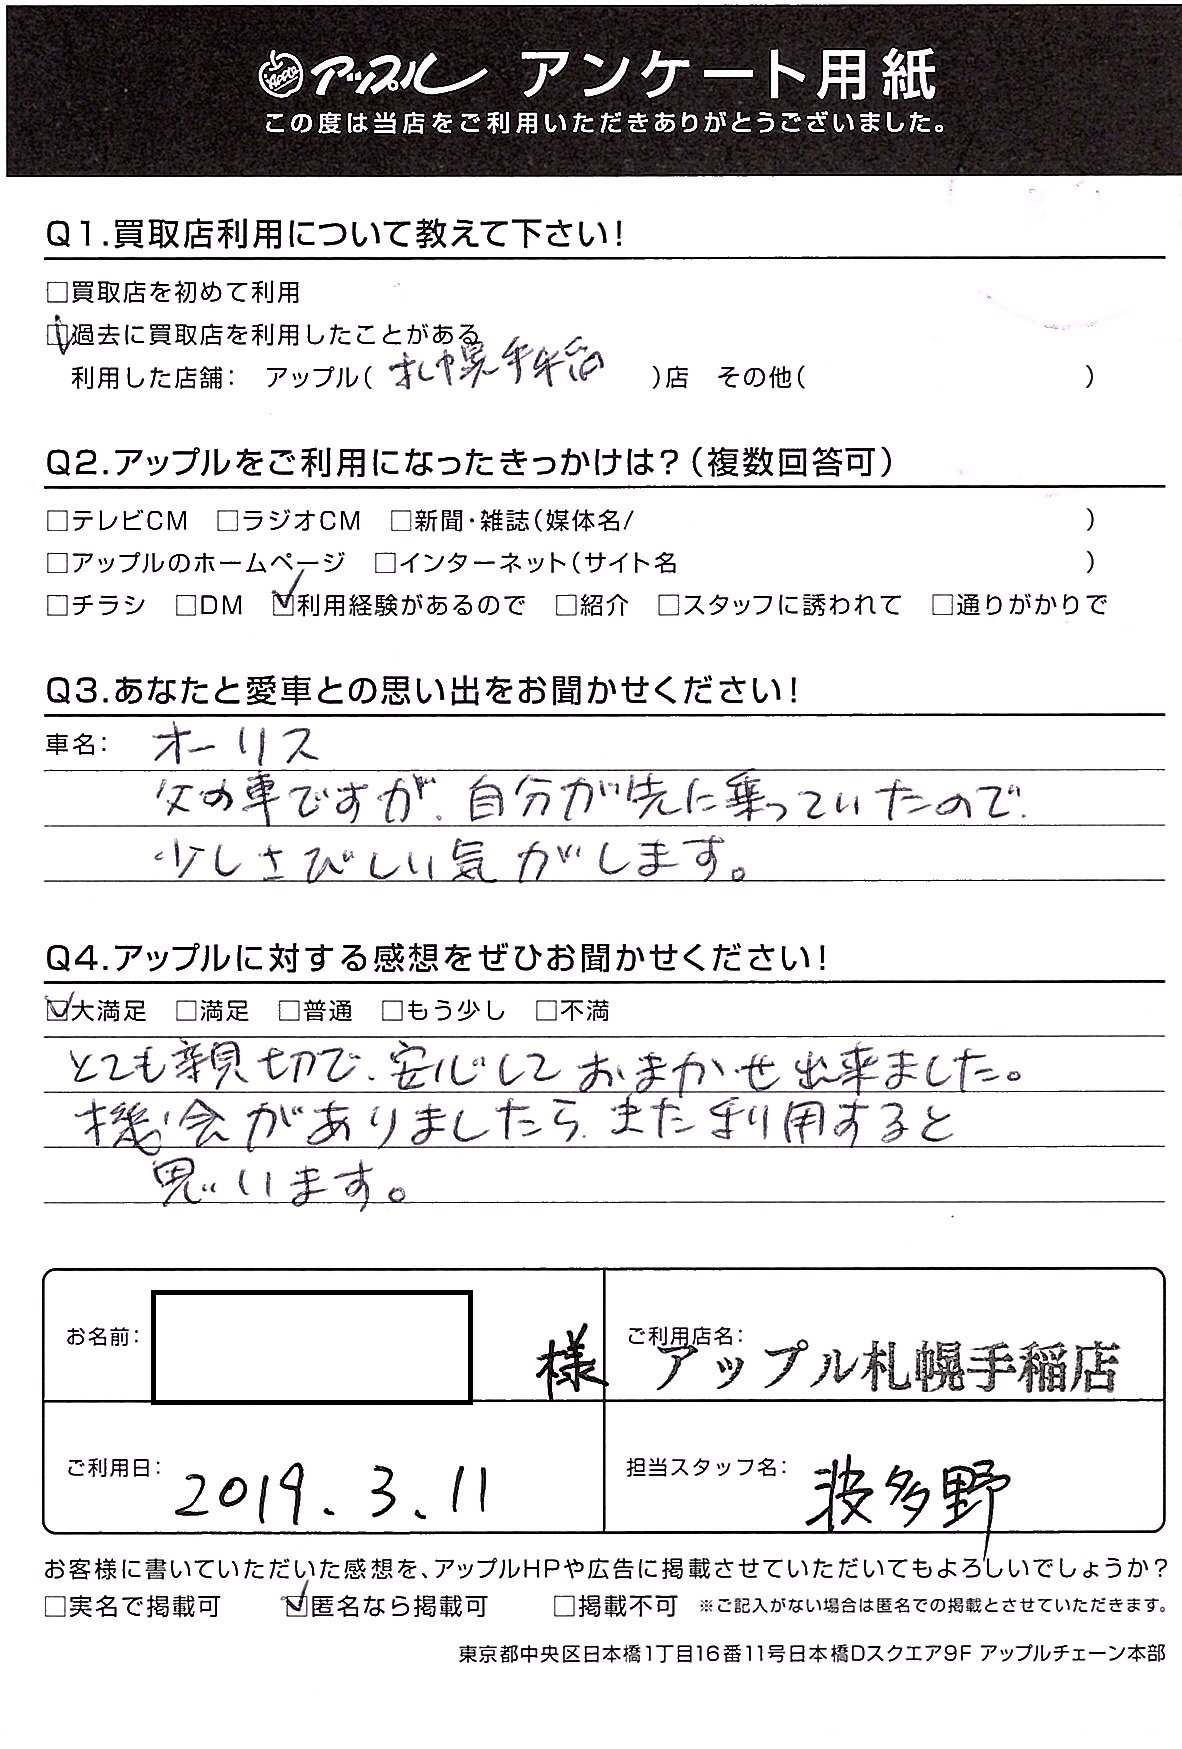 Apple アップル アンケート用紙
この度は当店をご利用いただきありがとうございました。
Q1.買取店利用について教えて下さい!
□買取店を初めて利用
☑過去に買取店を利用したことがある
利用した店舗: アップル( 札幌手稲 )店 その他( )
Q2.アップルをご利用になったきっかけは?(複数回答可)
□テレビCM □ラジオCM □新聞・雑誌(媒体名/ )
□アップルのホームページ □インターネット(サイト名 )
□チラシ □DM ☑利用経験があるので □紹介 □スタッフに誘われて □通りがかりで
Q3.あなたと愛車との思い出をお聞かせください!
車名: オーリス
父の車ですが、自分が先に乗っていたので、
少しさびしい気がします。
Q4.アップルに対する感想をぜひお聞かせください!
☑大満足 □満足 □普通 □もう少し □不満
とても親切で、安心しておまかせ出来ました。
機会がありましたら、また利用すると
思います。
お名前: 様
ご利用店名: アップル札幌手稲店
ご利用日: 2019.3.11
担当スタッフ名: 波多野
お客様に書いていただいた感想を、アップルHPや広告に掲載させていただいてもよろしいでしょうか?
□実名で掲載可 ☑匿名なら掲載可 □掲載不可 ※ご記入がない場合は匿名での掲載とさせていただきます。
東京都中央区日本橋1丁目16番11号日本橋Dスクエア9F アップルチェーン本部